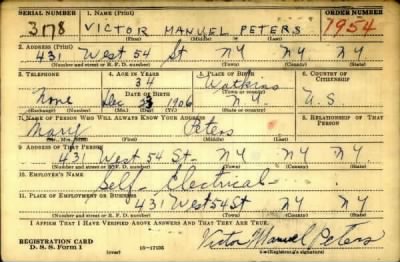 SERIAL NUMBER 1. NAME (Print) ORDER NUMBER
3178 VICTOR MANUEL PETERS 7954
(First) (Middle) (Last)
2. ADDRESS (Print)
431 West 54 St NY NY NY
(Number and street or R. F. D. number) (Town) (County) (State)
3. TELEPHONE 4. AGE IN YEARS 5. PLACE OF BIRTH 6. COUNTRY OF CITIZENSHIP
34 Watkins
DATE OF BIRTH
None Dec 1906 N.Y. U.S.
(Exchange) (Number) (Mo.) (Day) (Yr.) (State or country)
7. NAME OF PERSON WHO WILL ALWAYS KNOW YOUR ADDRESS 8. RELATIONSHIP OF THAT PERSON
Mary Peters
(First) (Middle) (Last)
9. ADDRESS OF THAT PERSON
431 West 54 St - NY NY NY
(Number and street or R. F. D. number) (Town) (County) (State)
10. EMPLOYER'S NAME
Self - Electrical -
11. PLACE OF EMPLOYMENT OR BUSINESS
431 West 54 St NY
(Number and street or R. F. D. number) (Town) (County) (State)
I AFFIRM THAT I HAVE VERIFIED ABOVE ANSWERS AND THAT THEY ARE TRUE.
REGISTRATION CARD
D. S. S. Form 1 (over) Victor Manuel Peters
(Registrant's signature)